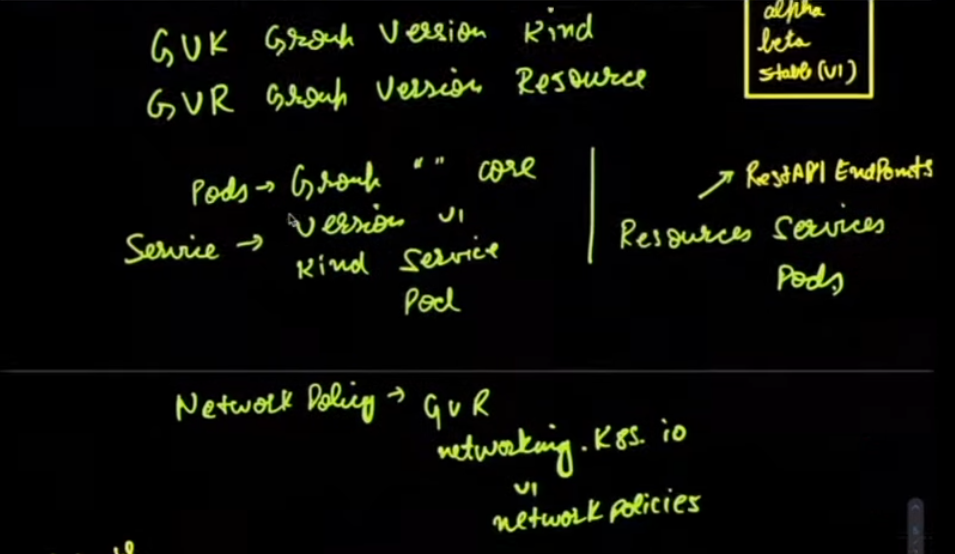 GVK Group Version Kind
GVR Group Version Resource
alpha
beta
stable (v1)
Pods → Group "" core
Service → Version v1
Kind Service
Pod
RestAPI EndPoints
Resources Services
Pods
Network Policy → GVR
networking.K8s.io
v1
network policies